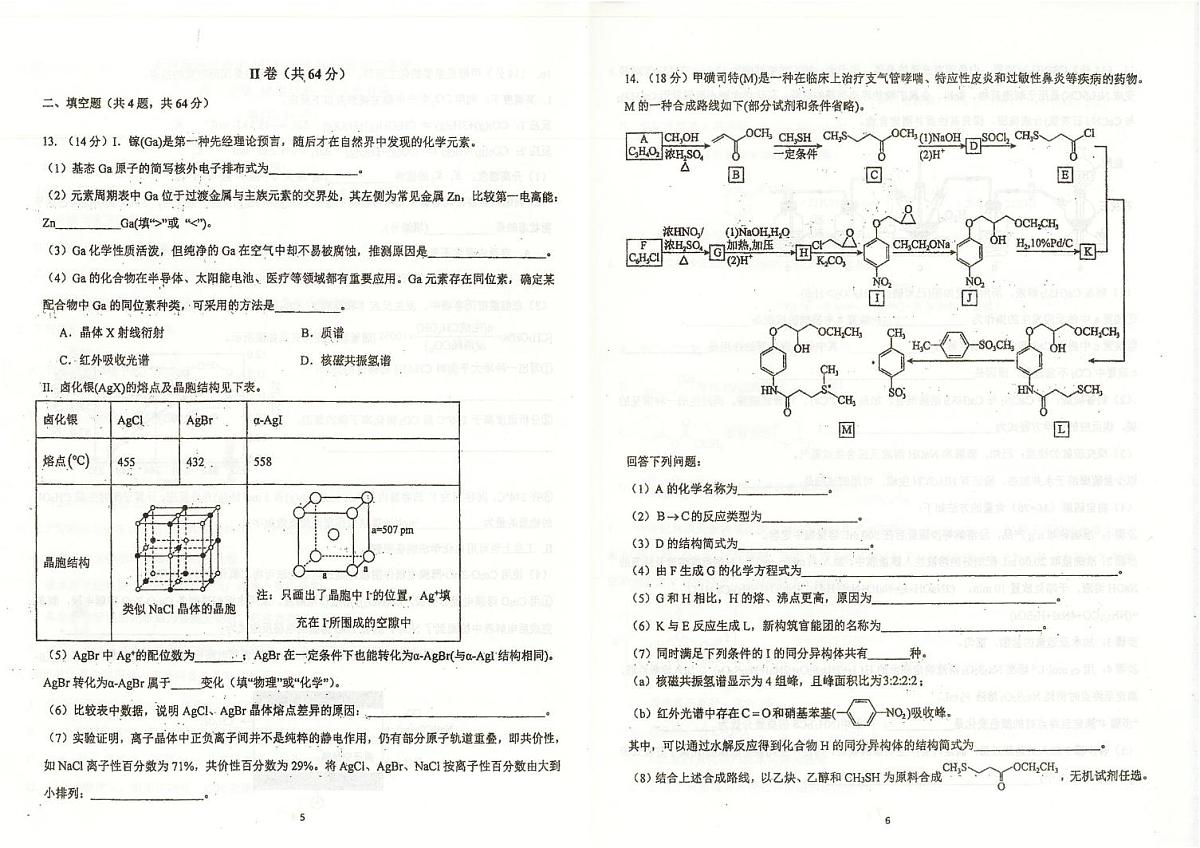 II 卷（共 64 分）
二、填空题（共 4 题，共 64 分）
13. （14 分）I．镓(Ga)是第一种先经理论预言，随后才在自然界中发现的化学元素。
（1）基态 Ga 原子的简写核外电子排布式为____________。
（2）元素周期表中 Ga 位于过渡金属与主族元素的交界处，其左侧为常见金属 Zn，比较第一电离能：
Zn__________Ga(填“>”或 “<”)。
（3）Ga 化学性质活泼，但纯净的 Ga 在空气中却不易被腐蚀，推测原因是__________________。
（4）Ga 的化合物在半导体、太阳能电池、医疗等领域都有重要应用。Ga 元素存在同位素，确定某
配合物中 Ga 的同位素种类，可采用的方法是__________。
A．晶体 X 射线衍射 B．质谱
C．红外吸收光谱 D．核磁共振氢谱
II. 卤化银(AgX)的熔点及晶胞结构见下表。
卤化银 AgCl AgBr α-AgI
熔点(℃) 455 432 558
晶胞结构
a=507 pm
a a
类似 NaCl 晶体的晶胞
注：只画出了晶胞中 I⁻的位置，Ag⁺填
充在 I⁻所围成的空隙中
（5）AgBr 中 Ag⁺的配位数为______；AgBr 在一定条件下也能转化为α-AgBr(与α-AgI 结构相同)。
AgBr 转化为α-AgBr 属于____变化（填“物理”或“化学”）。
（6）比较表中数据，说明 AgCl、AgBr 晶体熔点差异的原因：________________________。
（7）实验证明，离子晶体中正负离子间并不是纯粹的静电作用，仍有部分原子轨道重叠，即共价性，
如 NaCl 离子性百分数为 71%，共价性百分数为 29%。将 AgCl、AgBr、NaCl 按离子性百分数由大到
小排列：______________。
5
14. （18 分）甲磺司特(M)是一种在临床上治疗支气管哮喘、特应性皮炎和过敏性鼻炎等疾病的药物。
M 的一种合成路线如下(部分试剂和条件省略)。
A C₃H₄O₂ CH₃OH 浓H₂SO₄ △ OCH₃ O B CH₃SH 一定条件 CH₃S OCH₃ O C (1)NaOH (2)H⁺ D SOCl₂ CH₃S Cl O E
F C₆H₅Cl 浓HNO₃/ 浓H₂SO₄ △ G (1)NaOH,H₂O 加热,加压 (2)H⁺ H Cl O K₂CO₃ O O NO₂ I CH₃CH₂ONa O OCH₂CH₃ OH NO₂ J H₂,10%Pd/C K
O OCH₂CH₃ OH HN O S⁺ CH₃ CH₃ M CH₃ SO₃⁻ H₃C SO₃CH₃ O OCH₂CH₃ OH HN O SCH₃ L
回答下列问题：
（1）A 的化学名称为____________。
（2）B→C的反应类型为____________。
（3）D 的结构简式为____________。
（4）由 F 生成 G 的化学方程式为________________________。
（5）G 和 H 相比，H 的熔、沸点更高，原因为________________________。
（6）K 与 E 反应生成 L，新构筑官能团的名称为__________________。
（7）同时满足下列条件的 I 的同分异构体共有______种。
(a）核磁共振氢谱显示为 4 组峰，且峰面积比为3:2:2:2；
(b）红外光谱中存在 C＝O 和硝基苯基( NO₂)吸收峰。
其中，可以通过水解反应得到化合物 H 的同分异构体的结构简式为________________。
（8）结合上述合成路线，以乙炔、乙醇和 CH₃SH 为原料合成 CH₃S OCH₂CH₃ O ，无机试剂任选。
6